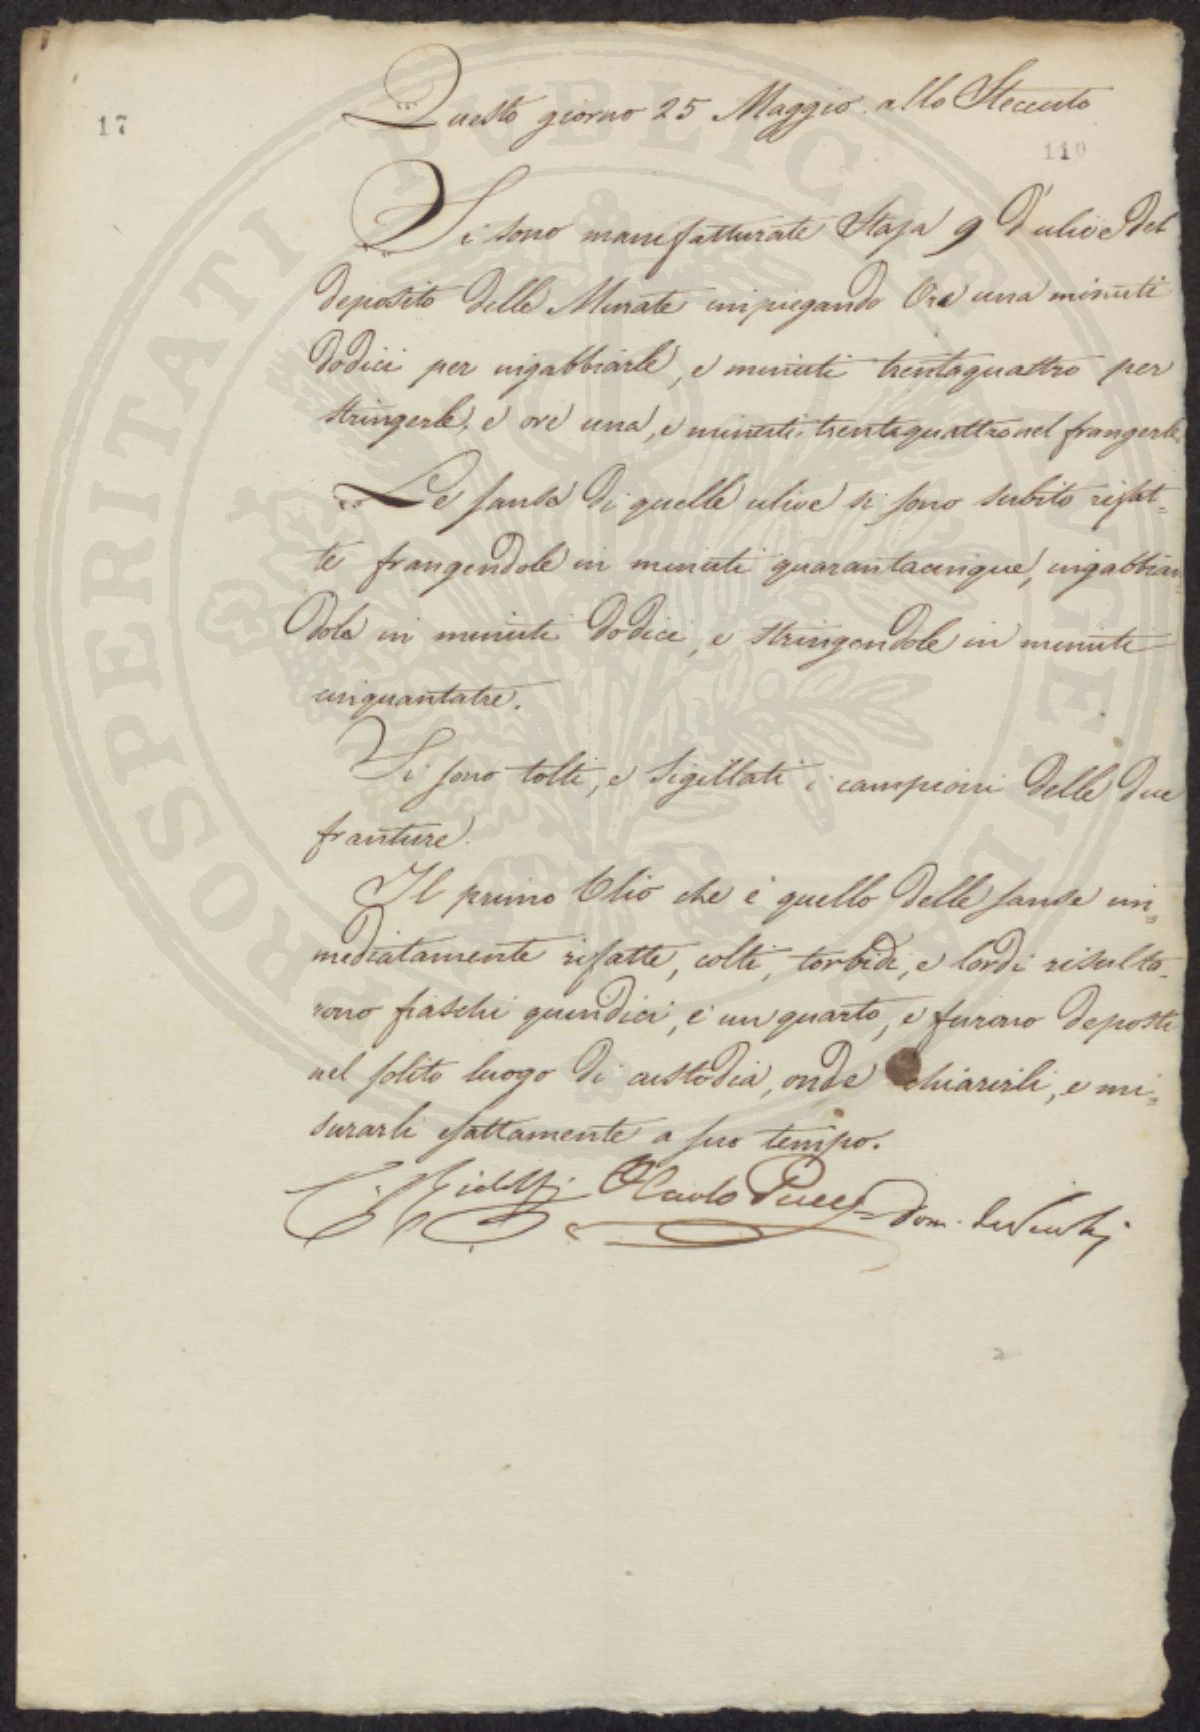 17
Questo giorno 25 Maggio allo Steccuto
110
Si sono manifatturate Staja 9 d'ulive del
deposito delle Murate impiegando Ora una minuti
dodici per ingabbiarle, e minuti trentaquattro per
stringerle, e ore una, e minuti trentaquattro nel frangerle.
Le sanse di quelle ulive si sono subito rifat=
te frangendole in minuti quarantacinque, ingabbian
dole in minuti dodici, e stringendole in minuti
cinquantatre.
Si sono tolti, e Sigillati i campioni delle due
franture.
Il primo Olio che è quello delle sanse im=
mediatamente rifatte, colti, torbidi, e lordi risulta=
rono fiaschi quindici, e un quarto, e furono deposti
nel solito luogo di custodia, onde chiarirli, e mi=
surarli esattamente a suo tempo.
C. Ridolfi Paolo Pucci Dom.
2
PROSPERITATI PUBLICAE AUGENDAE